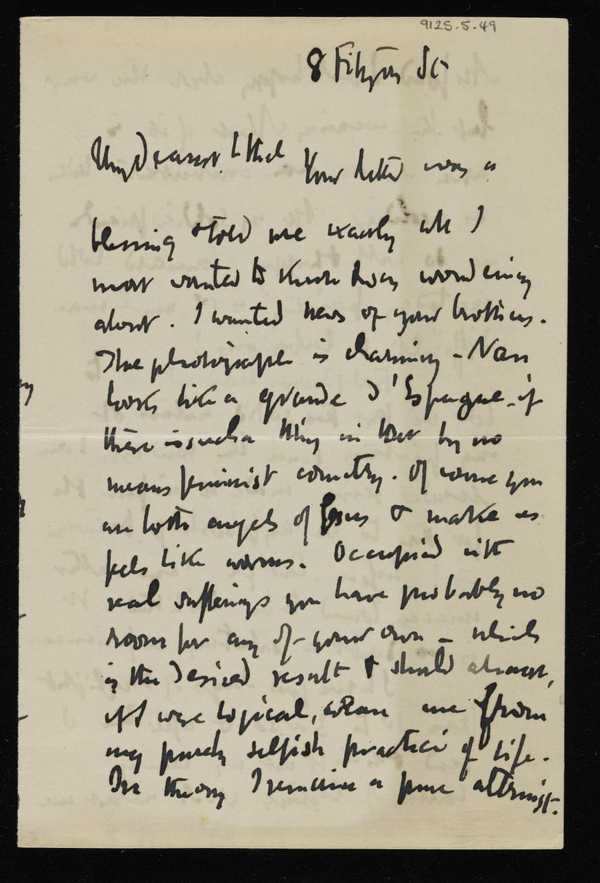 9125.5.49
8 Fitzroy St
My Dearest Ethel Your letter was a
blessing & told me exactly all I
most wanted to know & was wondering
about. I wanted news of your brothers.
The photograph is charming - Nan
looks like a grande d'Espagne - if
there is such a thing in that by no
means feminist country. Of course you
are both angels of & make us
feel like worms. Occupied with
real sufferings you have probably no
room for any of your own - which
is the desired result & should almost,
if I were logical, me from
my purely selfish practice of life.
In theory I remain a pure altruist.